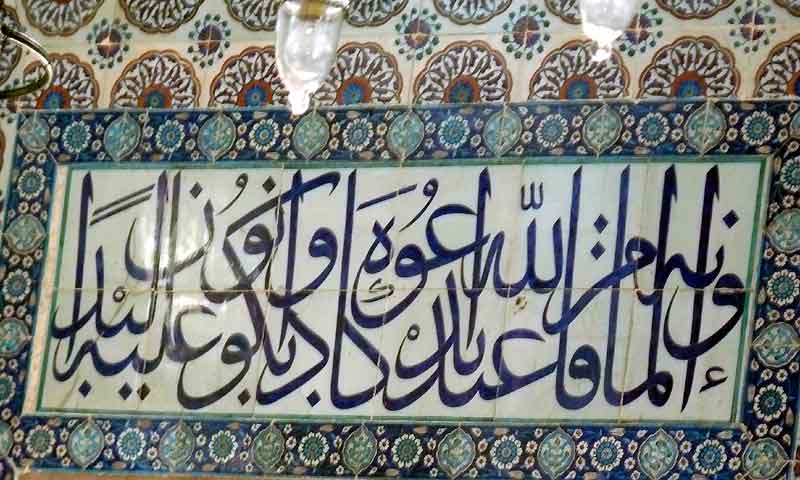 وإنه لما قام عبد الله يدعوه كادوا يكونون عليه لبدا